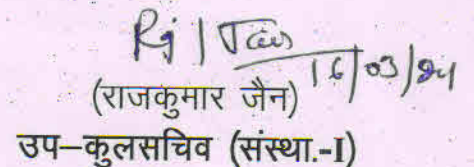 16/03/24
(राजकुमार जैन)
उप–कुलसचिव (संस्था.-I)